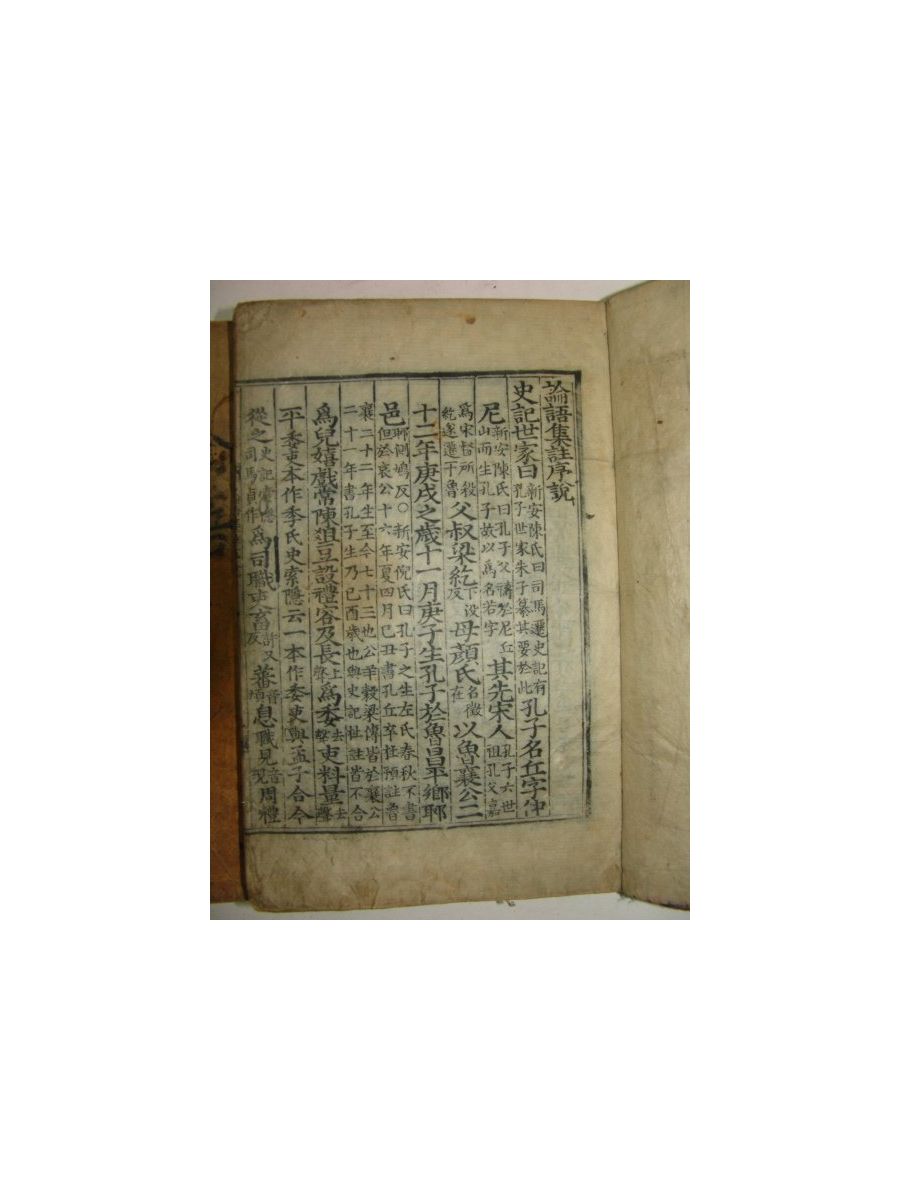 論語集註序說
史記世家曰新安陳氏曰司馬遷史記有孔子世家朱子纂其要於此孔子名丘字仲
尼新安陳氏曰孔子父禱於尼丘山而生孔子故以爲名若字其先宋人孔子六世祖孔父嘉
爲宋督所殺紇遂遷于魯父叔梁紇下沒反母顏氏名徵在以魯襄公二
十二年庚戌之歲十一月庚子生孔子於魯昌平鄉郰
邑郰側鳩反○新安倪氏曰孔子之生左氏春秋不書但於哀公十六年夏四月己丑書孔丘卒杜預註魯
襄二十二年生至今七十三也公羊穀梁傳皆於襄公二十一年書孔子生乃己酉歲也與史記杜註皆不合
爲兒嬉戲常陳俎豆設禮容及長上聲爲委去聲吏料量去聲
平委吏本作季氏史索隱云一本作委吏與孟子合今
從之史記索隱司馬貞作爲司職吏畜許又反蕃音煩息職見音現周禮